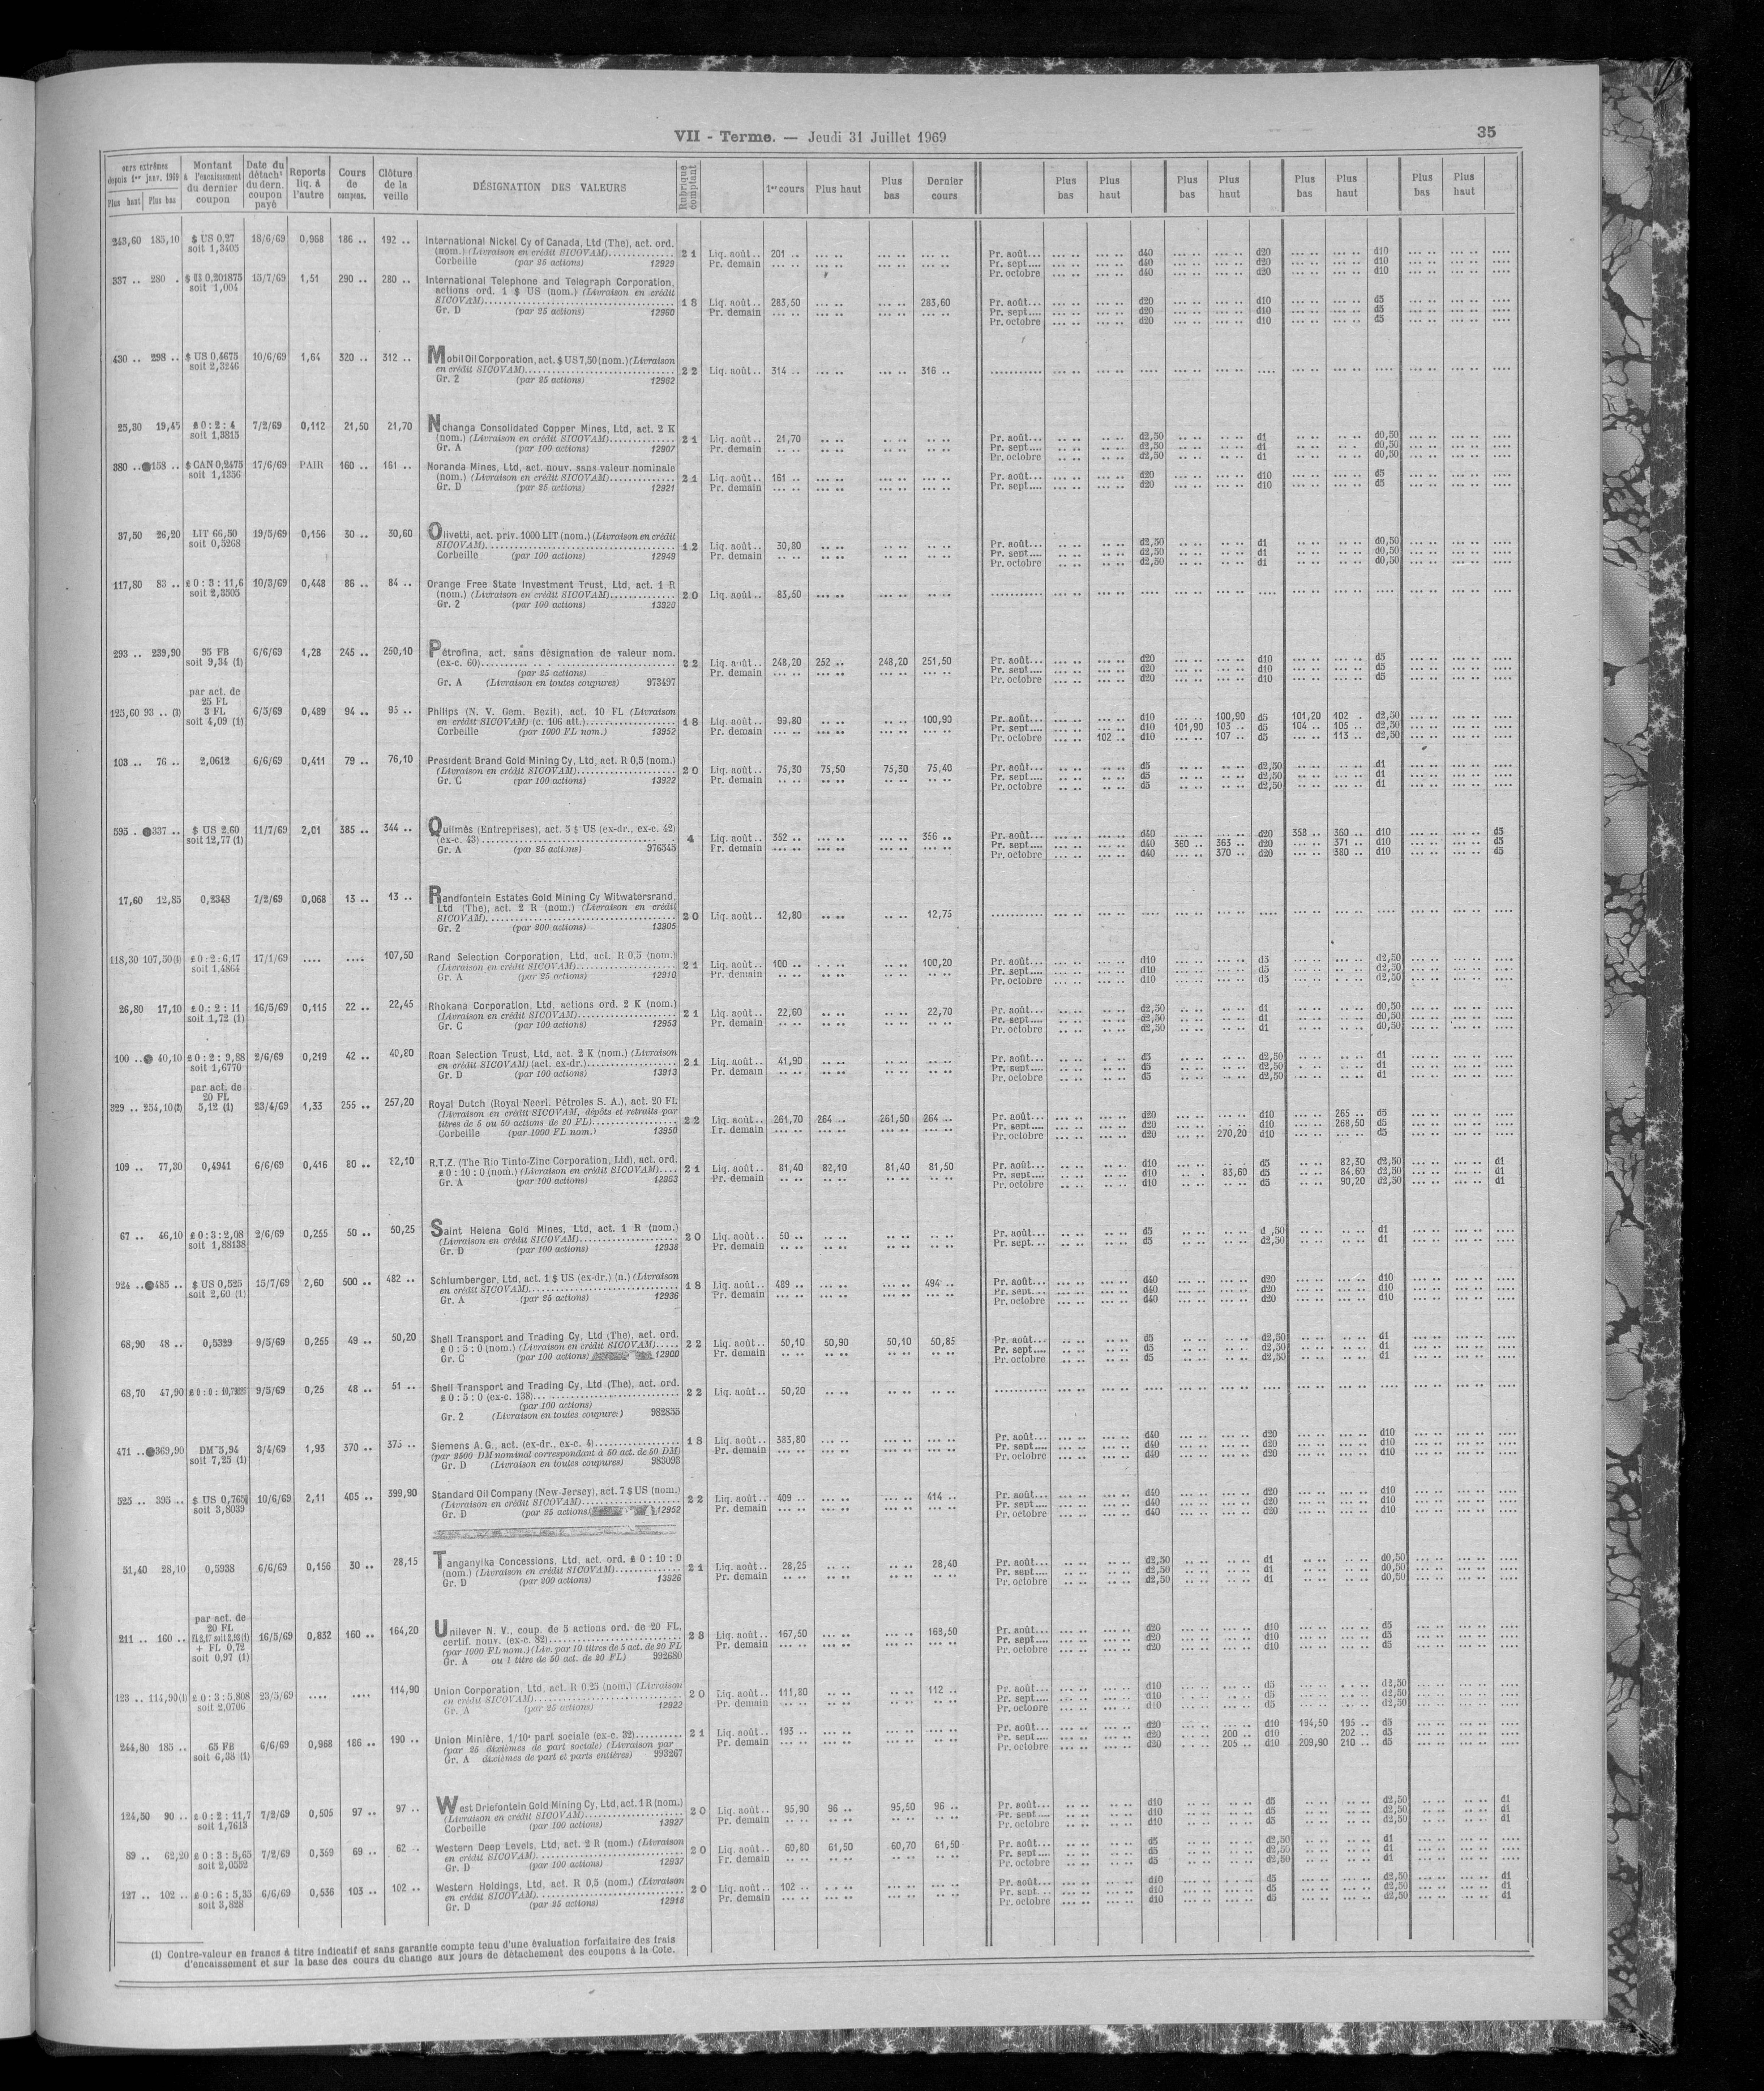 VII - Terme. — Jeudi 31 Juillet 1969
35
ours extrêmes depuis 1er janv. 1969 Plus haut Plus bas | Montant à l'encaissement du dernier coupon | Date du détacht du dern. coupon payé | Reports liq. à l'autre | Cours de compens. | Clôture de la veille | DÉSIGNATION DES VALEURS | Rubrique comptant | 1er cours | Plus haut | Plus bas | Dernier cours | Plus bas | Plus haut | Plus bas | Plus haut | Plus bas | Plus haut | Plus bas | Plus haut
243,60 185,10 $ US 0,27 18/6/69 0,968 186 .. 192 .. International Nickel Cy of Canada, Ltd (The), act. ord.
soit 1,3405 (nom.) (Livraison en crédit SICOVAM) 21 Liq. août.. 201 .. Pr. août... d40 d20 d10
Corbeille (par 25 actions) 12929 Pr. demain Pr. sept.... d40 d20 d10
Pr. octobre d40 d20 d10
337 .. 280 . $ US 0,201875 15/7/69 1,51 290 .. 280 .. International Telephone and Telegraph Corporation,
soit 1,004 actions ord. 1 $ US (nom.) (Livraison en crédit
SICOVAM) 18 Liq. août.. 283,50 283,60 Pr. août... d20 d10 d5
Gr. D (par 25 actions) 12960 Pr. demain Pr. sept.... d20 d10 d5
Pr. octobre d20 d10 d5
430 .. 298 .. $ US 0,4675 10/6/69 1,64 320 .. 312 .. Mobil Oil Corporation, act. $ US 7,50 (nom.) (Livraison
soit 2,3246 en crédit SICOVAM) 22 Liq. août.. 314 .. 316 ..
Gr. 2 (par 25 actions) 12962
25,30 19,45 £ 0 : 2 : 4 7/2/69 0,112 21,50 21,70 Nchanga Consolidated Copper Mines, Ltd, act. 2 K
soit 1,3815 (nom.) (Livraison en crédit SICOVAM) 21 Liq. août.. 21,70 Pr. août... d2,50 d1 d0,50
Gr. A (par 100 actions) 12907 Pr. demain Pr. sept.... d2,50 d1 d0,50
Pr. octobre d2,50 d1 d0,50
380 .. ●158 .. $ CAN 0,2475 17/6/69 PAIR 160 .. 161 .. Noranda Mines, Ltd, act. nouv. sans valeur nominale
soit 1,1356 (nom.) (Livraison en crédit SICOVAM) 21 Liq. août.. 161 .. Pr. août... d20 d10 d5
Gr. D (par 25 actions) 12921 Pr. demain Pr. sept.... d20 d10 d5
37,50 26,20 LIT 66,50 19/5/69 0,156 30 .. 30,60 Olivetti, act. priv. 1000 LIT (nom.) (Livraison en crédit
soit 0,5268 SICOVAM) 12 Liq. août.. 30,80 Pr. août... d2,50 d1 d0,50
Corbeille (par 100 actions) 12949 Pr. demain Pr. sept.... d2,50 d1 d0,50
Pr. octobre d2,50 d1 d0,50
117,80 83 .. £ 0 : 3 : 11,6 10/3/69 0,448 86 .. 84 .. Orange Free State Investment Trust, Ltd, act. 1 R
soit 2,3505 (nom.) (Livraison en crédit SICOVAM) 20 Liq. août.. 83,50
Gr. 2 (par 100 actions) 13920
293 .. 239,90 95 FB 6/6/69 1,28 245 .. 250,10 Pétrofina, act. sans désignation de valeur nom.
soit 9,34 (1) (ex-c. 60) 22 Liq. août.. 248,20 252 .. 248,20 251,50 Pr. août... d20 d10 d5
(par 25 actions) Pr. demain Pr. sept.... d20 d10 d5
Gr. A (Livraison en toutes coupures) 973497 Pr. octobre d20 d10 d5
par act. de
25 FL
125,60 93 .. (3) 3 FL 6/5/69 0,489 94 .. 95 .. Philips (N. V. Gem. Bezit), act. 10 FL (Livraison
soit 4,09 (1) en crédit SICOVAM) (c. 106 att.) 18 Liq. août.. 99,80 100,90 Pr. août... d10 100,90 d5 101,20 102 . d2,50
Corbeille (par 1000 FL nom.) 13952 Pr. demain Pr. sept.... d10 101,90 103 .. d5 104 .. 105 .. d2,50
Pr. octobre 102 .. d10 107 .. d5 113 .. d2,50
103 .. 76 .. 2,0612 6/6/69 0,411 79 .. 76,10 President Brand Gold Mining Cy, Ltd, act. R 0,5 (nom.)
(Livraison en crédit SICOVAM) 20 Liq. août.. 75,30 75,50 75,30 75,40 Pr. août... d5 d2,50 d1
Gr. C (par 100 actions) 13922 Pr. demain Pr. sept.... d5 d2,50 d1
Pr. octobre d5 d2,50 d1
595 . ●337 .. $ US 2,60 11/7/69 2,01 385 .. 344 .. Quilmès (Entreprises), act. 5 $ US (ex-dr., ex-c. 42)
soit 12,77 (1) (ex-c. 43) 4 Liq. août.. 352 .. 356 .. Pr. août... d40 d20 358 .. 360 .. d10 d5
Gr. A (par 25 actions) 976545 Pr. demain Pr. sept.... d40 360 .. 363 .. d20 371 .. d10 d5
Pr. octobre d40 370 .. d20 380 .. d10 d5
17,60 12,85 0,2348 7/2/69 0,068 13 .. 13 .. Randfontein Estates Gold Mining Cy Witwatersrand,
Ltd (The), act. 2 R (nom.) (Livraison en crédit
SICOVAM) 20 Liq. août.. 12,80 12,75
Gr. 2 (par 200 actions) 13905
118,30 107,50 (1) £ 0 : 2 : 6,17 17/1/69 .... .... 107,50 Rand Selection Corporation, Ltd, act. R 0,5 (nom.)
soit 1,4864 (Livraison en crédit SICOVAM) 21 Liq. août.. 100 .. 100,20 Pr. août... d10 d5 d2,50
Gr. A (par 25 actions) 12910 Pr. demain Pr. sept.... d10 d5 d2,50
Pr. octobre d10 d5 d2,50
26,80 17,10 £ 0 : 2 : 11 16/5/69 0,115 22 .. 22,45 Rhokana Corporation, Ltd, actions ord. 2 K (nom.)
soit 1,72 (1) (Livraison en crédit SICOVAM) 21 Liq. août.. 22,60 22,70 Pr. août... d2,50 d1 d0,50
Gr. C (par 100 actions) 12953 Pr. demain Pr. sept.... d2,50 d1 d0,50
Pr. octobre d2,50 d1 d0,50
100 .. ● 40,10 £ 0 : 2 : 9,88 2/6/69 0,219 42 .. 40,80 Roan Selection Trust, Ltd, act. 2 K (nom.) (Livraison
soit 1,6770 en crédit SICOVAM) (act. ex-dr.) 21 Liq. août.. 41,90 Pr. août... d5 d2,50 d1
Gr. D (par 100 actions) 13913 Pr. demain Pr. sept.... d5 d2,50 d1
Pr. octobre d5 d2,50 d1
par act. de
20 FL
329 .. 254,10 5,12 (1) 23/4/69 1,33 255 .. 257,20 Royal Dutch (Royal Neerl. Pétroles S. A.), act. 20 FL
(Livraison en crédit SICOVAM, dépôts et retraits par
titres de 5 ou 50 actions de 20 FL) 22 Liq. août.. 261,70 264 .. 261,50 264 .. Pr. août... d20 d10 265 .. d5
Corbeille (par 1000 FL nom.) 13950 Pr. demain Pr. sept.... d20 d10 268,50 d5
Pr. octobre d20 270,20 d10 d5
109 .. 77,30 0,4941 6/6/69 0,416 80 .. 82,10 R.T.Z. (The Rio Tinto-Zinc Corporation, Ltd), act. ord.
£ 0 : 10 : 0 (nom.) (Livraison en crédit SICOVAM) 21 Liq. août.. 81,40 82,10 81,40 81,50 Pr. août... d10 d5 82,30 d2,50 d1
Gr. A (par 100 actions) 12963 Pr. demain Pr. sept.... d10 83,60 d5 84,60 d2,50 d1
Pr. octobre d10 d5 90,20 d2,50 d1
67 .. 46,10 £ 0 : 3 : 2,08 2/6/69 0,255 50 .. 50,25 Saint Helena Gold Mines, Ltd, act. 1 R (nom.)
soit 1,88138 (Livraison en crédit SICOVAM) 20 Liq. août.. 50 .. Pr. août... d5 d ,50 d1
Gr. D (par 100 actions) 12938 Pr. demain Pr. sept... d5 d2,50 d1
924 .. ●485 .. $ US 0,525 15/7/69 2,60 500 .. 482 .. Schlumberger, Ltd, act. 1 $ US (ex-dr.) (n.) (Livraison
soit 2,60 (1) en crédit SICOVAM) 18 Liq. août.. 489 .. 494 .. Pr. août... d40 d20 d10
Gr. A (par 25 actions) 12936 Pr. demain Pr. sept.... d40 d20 d10
Pr. octobre d40 d20 d10
68,90 48 .. 0,5329 9/5/69 0,255 49 .. 50,20 Shell Transport and Trading Cy, Ltd (The), act. ord.
£ 0 : 5 : 0 (nom.) (Livraison en crédit SICOVAM) 22 Liq. août.. 50,10 50,90 50,10 50,85 Pr. août... d5 d2,50 d1
Gr. C (par 100 actions) 12900 Pr. demain Pr. sept.... d5 d2,50 d1
Pr. octobre d5 d2,50 d1
68,70 47,90 £ 0 : 0 : 10,79 9/5/69 0,25 48 .. 51 .. Shell Transport and Trading Cy, Ltd (The), act. ord.
£ 0 : 5 : 0 (ex-c. 138) 22 Liq. août.. 50,20
(par 100 actions)
Gr. 2 (Livraison en toutes coupures) 982855
471 .. ●369,90 DM 5,94 3/4/69 1,93 370 .. 375 .. Siemens A.G., act. (ex-dr., ex-c. 4) 18 Liq. août.. 383,80 Pr. août... d40 d20 d10
soit 7,25 (1) (par 2500 DM nominal correspondant à 50 act. de 50 DM) Pr. demain Pr. sept.... d40 d20 d10
Gr. D (Livraison en toutes coupures) 983093 Pr. octobre d40 d20 d10
525 .. 395 .. $ US 0,765 10/6/69 2,11 405 .. 399,90 Standard Oil Company (New-Jersey), act. 7 $ US (nom.)
soit 3,8039 (Livraison en crédit SICOVAM) 22 Liq. août.. 409 .. 414 .. Pr. août... d40 d20 d10
Gr. D (par 25 actions) 12952 Pr. demain Pr. sept.... d40 d20 d10
Pr. octobre d40 d20 d10
51,40 28,10 0,5938 6/6/69 0,156 30 .. 28,15 Tanganyika Concessions, Ltd, act. ord. £ 0 : 10 : 0
(nom.) (Livraison en crédit SICOVAM) 21 Liq. août.. 28,25 28,40 Pr. août... d2,50 d1 d0,50
Gr. D (par 200 actions) 13926 Pr. demain Pr. sept.... d2,50 d1 d0,50
Pr. octobre d2,50 d1 d0,50
par act. de
20 FL
211 .. 160 .. FL 2,17 soit 2,93 (1) 16/5/69 0,832 160 .. 164,20 Unilever N. V., coup. de 5 actions ord. de 20 FL,
+ FL 0,72 certif. nouv. (ex-c. 82) 28 Liq. août.. 167,50 168,50 Pr. août... d20 d10 d5
soit 0,97 (1) (par 1000 FL nom.) (Liv. par 10 titres de 5 act. de 20 FL Pr. demain Pr. sept.... d20 d10 d5
Gr. A ou 1 titre de 50 act. de 20 FL) 992680 Pr. octobre d20 d10 d5
123 .. 114,90 (1) £ 0 : 3 : 5,808 23/5/69 .... .... 114,90 Union Corporation, Ltd, act. R 0,25 (nom.) (Livraison
soit 2,0706 en crédit SICOVAM) 20 Liq. août.. 111,80 112 .. Pr. août... d10 d5 d2,50
Gr. A (par 25 actions) 12922 Pr. demain Pr. sept.... d10 d5 d2,50
Pr. octobre d10 d5 d2,50
244,80 185 .. 65 FB 6/6/69 0,968 186 .. 190 .. Union Minière, 1/10e part sociale (ex-c. 32) 21 Liq. août.. 193 .. Pr. août... d20 d10 194,50 195 .. d5
soit 6,38 (1) (par 25 dixièmes de part sociale) (Livraison par Pr. demain Pr. sept.... d20 200 .. d10 202 .. d5
Gr. A dixièmes de part et parts entières) 993267 Pr. octobre d20 205 .. d10 209,90 210 .. d5
124,50 90 .. £ 0 : 2 : 11,7 7/2/69 0,505 97 .. 97 .. West Driefontein Gold Mining Cy, Ltd, act. 1 R (nom.)
soit 1,7613 (Livraison en crédit SICOVAM) 20 Liq. août.. 95,90 96 .. 95,50 96 .. Pr. août... d10 d5 d2,50 d1
Corbeille (par 100 actions) 13927 Pr. demain Pr. sept.... d10 d5 d2,50 d1
Pr. octobre d10 d5 d2,50 d1
89 .. 62,20 £ 0 : 3 : 5,65 7/2/69 0,359 69 .. 62 .. Western Deep Levels, Ltd, act. 2 R (nom.) (Livraison
soit 2,0552 en crédit SICOVAM) 20 Liq. août.. 60,80 61,50 60,70 61,50 Pr. août... d5 d2,50 d1
Gr. D (par 100 actions) 12937 Pr. demain Pr. sept.... d5 d2,50 d1
Pr. octobre d5 d2,50 d1
127 .. 102 .. £ 0 : 6 : 5,35 6/6/69 0,536 103 .. 102 .. Western Holdings, Ltd, act. R 0,5 (nom.) (Livraison
soit 3,828 en crédit SICOVAM) 20 Liq. août.. 102 .. Pr. août... d10 d5 d2,50 d1
Gr. D (par 25 actions) 12918 Pr. demain Pr. sept... d10 d5 d2,50 d1
Pr. octobre d10 d5 d2,50 d1
(1) Contre-valeur en francs à titre indicatif et sans garantie compte tenu d'une évaluation forfaitaire des frais
d'encaissement et sur la base des cours du change aux jours de détachement des coupons à la Cote.